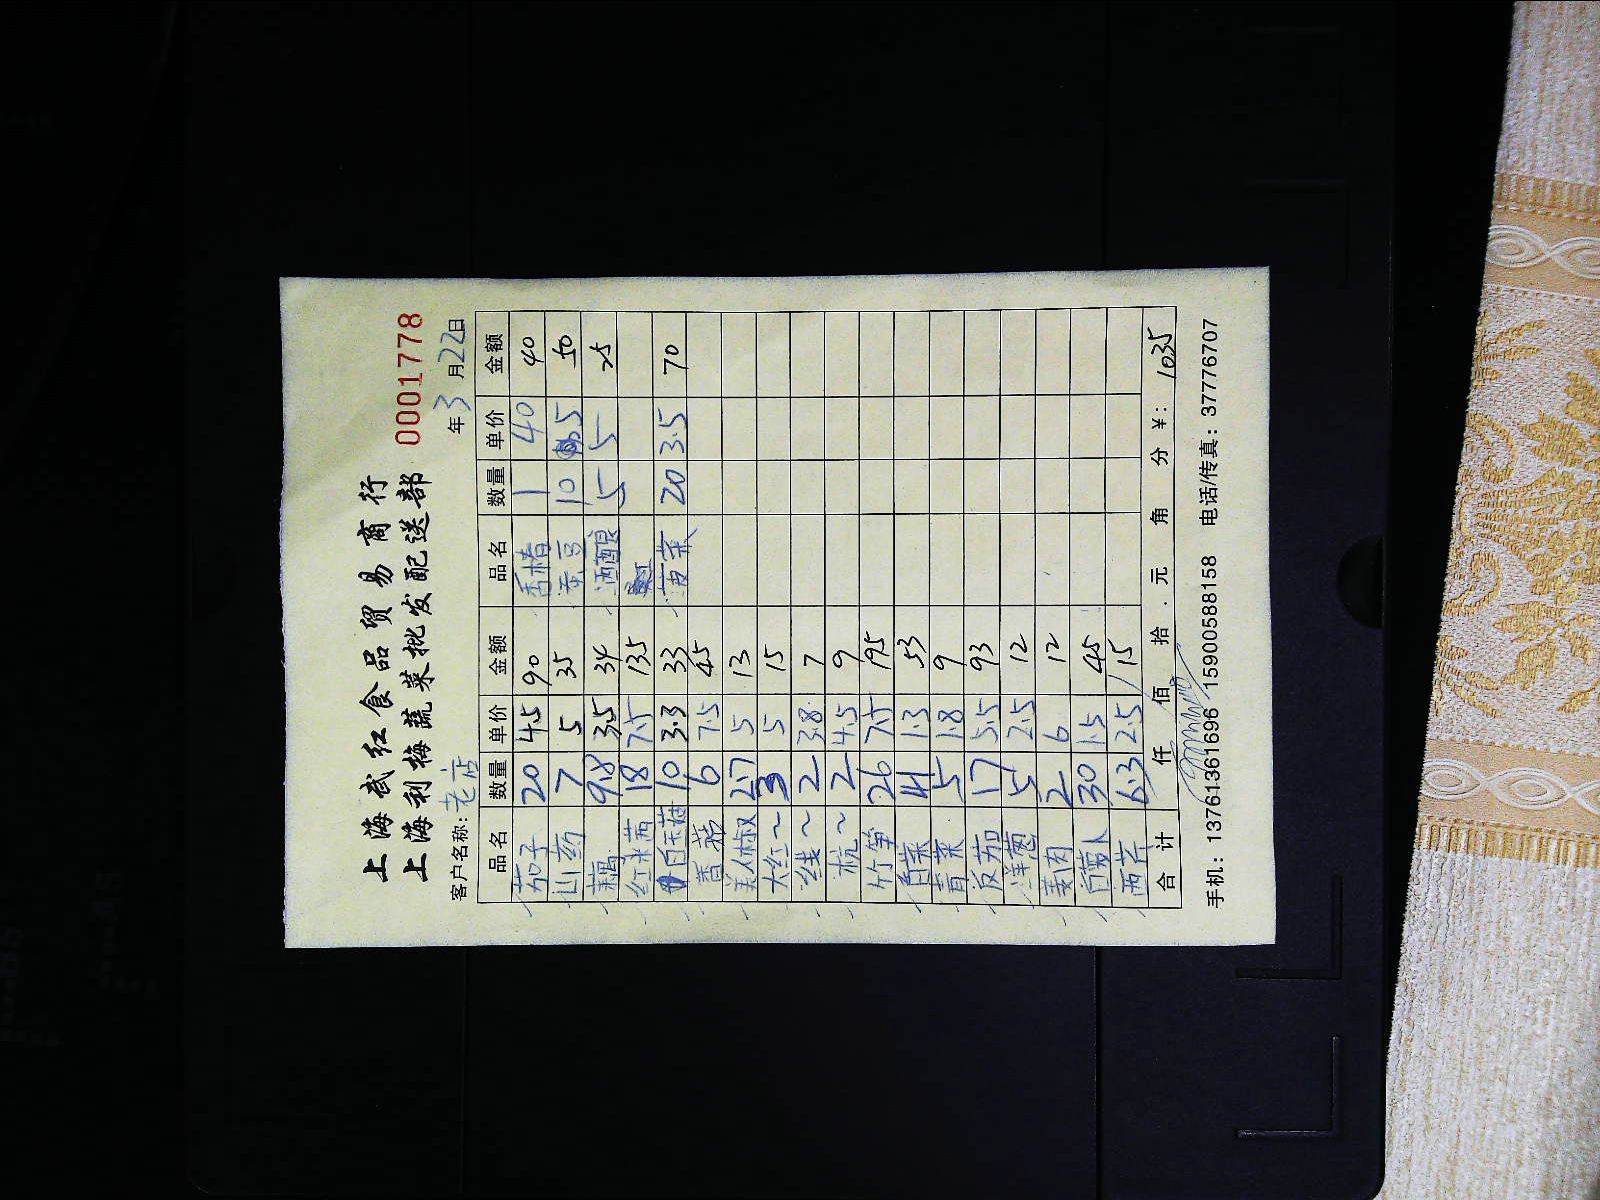 上海武红食品贸易商行
上海利梅蔬菜批发配送部 0001778
客户名称: 老店 年 3 月 22 日
品名 数量 单价 金额 品名 数量 单价 金额
茄子 20 4.5 90 香椿 1 40 40
山药 7 5 35 蚕豆 10 5 50
藕 9.8 3.5 34 酒酿 5 5 25
红米苋 18 7.5 135
白玉菇 10 3.3 33 菠菜 20 3.5 70
香菇 6 7.5 45
美人椒 2.7 5 13
大红~ 3 5 15
线~ 2 3.8 7
杭~ 2 4.5 9
竹笋 26 7.5 195
白菜 41 1.3 53
青菜 5 1.8 9
反茄 17 5.5 93
洋葱 5 2.5 12
姜肉 2 6 12
白萝卜 30 1.5 45
西芹 6.3 2.5 15
合计 仟 佰 拾 元 角 分 ¥: 1035
手机: 13761361696 15900588158 电话/传真: 37776707